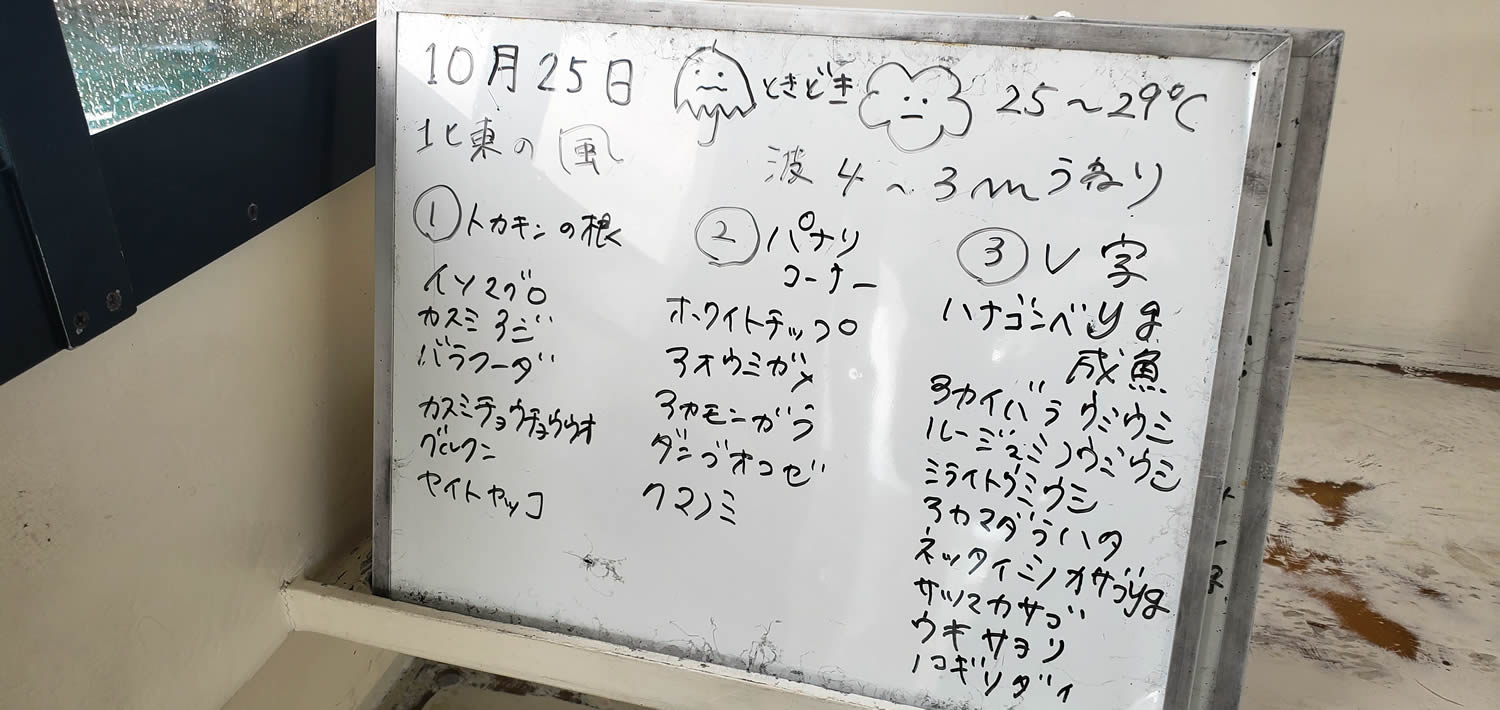 10月25日 ときどき 25～29℃
北東の風 波4～3mうねり
① トカキンの根
イソマグロ
カスミアジ
バラフエダ
カスミチョウチョウウオ
グルクン
ヤイトヤッコ
② パナリ
コーナー
ホワイトチップ
アオウミガメ
アカモンガラ
ダンゴオコゼ
クマノミ
③ V字
ハナゴンベyg
成魚
アカイバラウミウシ
ルージュミノウミウシ
ミライトウミウシ
アカマダラハタ
ネッタイミノカサゴyg
サツマカサゴ
ウキサヨリ
ノコギリダイ